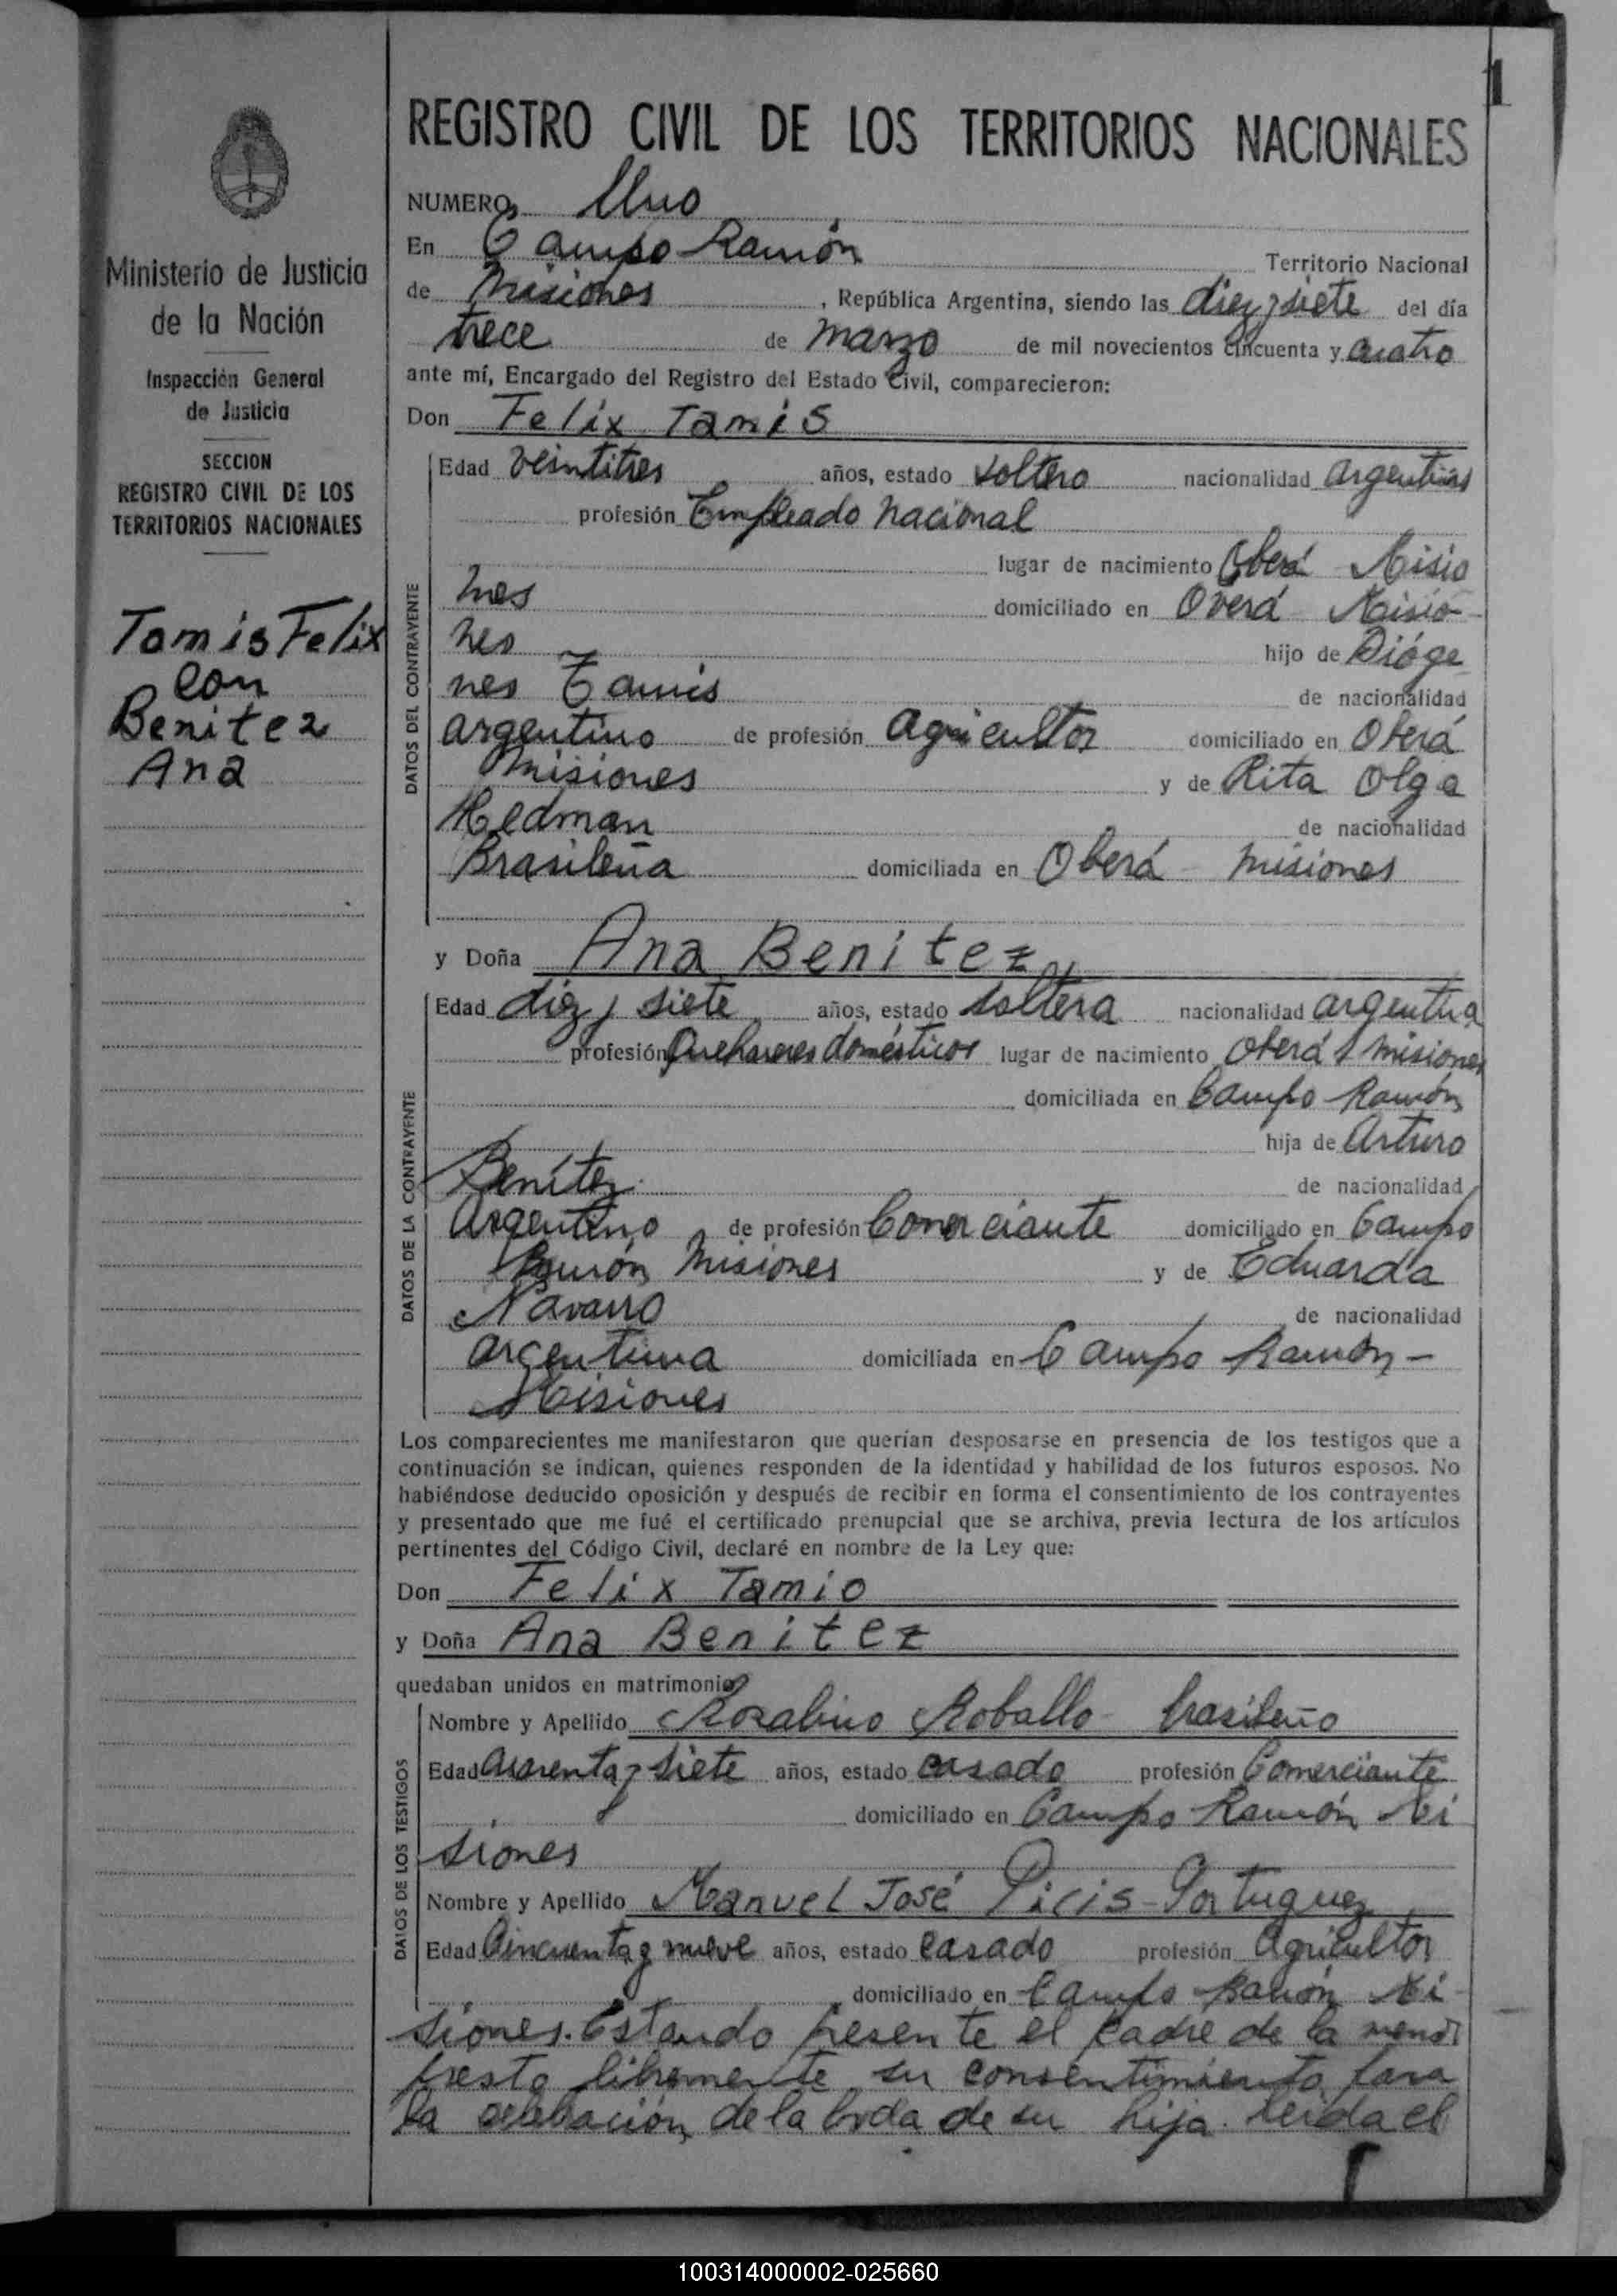 1
REGISTRO CIVIL DE LOS TERRITORIOS NACIONALES
Ministerio de Justicia
de la Nación
Inspección General
de Justicia
SECCION
REGISTRO CIVIL DE LOS
TERRITORIOS NACIONALES
Tamis Felix
con
Benitez
Ana
NUMERO Uno
En Campo Ramón Territorio Nacional
de Misiones, República Argentina, siendo las diez y siete del día
trece de Marzo de mil novecientos cincuenta y cuatro
ante mí, Encargado del Registro del Estado Civil, comparecieron:
Don Felix Tamis
DATOS DEL CONTRAYENTE
Edad veintitres años, estado soltero nacionalidad argentino
profesión Empleado Nacional
lugar de nacimiento Oberá Misio
nes domiciliado en Overá Misio-
nes hijo de Dióge
nes Tamis de nacionalidad
argentino de profesión agricultor domiciliado en Oberá
Misiones y de Rita Olga
Hedman de nacionalidad
Brasileña domiciliada en Oberá Misiones
y Doña Ana Benitez
DATOS DE LA CONTRAYENTE
Edad diez y siete años, estado soltera nacionalidad argentina
profesión Quehaceres domésticos lugar de nacimiento Oberá Misiones
domiciliada en Campo Ramón
hija de Arturo
Benítez de nacionalidad
Argentino de profesión Comerciante domiciliado en Campo
Ramón Misiones y de Eduarda
Navarro de nacionalidad
argentina domiciliada en Campo Ramón-
Misiones
Los comparecientes me manifestaron que querían desposarse en presencia de los testigos que a
continuación se indican, quienes responden de la identidad y habilidad de los futuros esposos. No
habiéndose deducido oposición y después de recibir en forma el consentimiento de los contrayentes
y presentado que me fué el certificado prenupcial que se archiva, previa lectura de los artículos
pertinentes del Código Civil, declaré en nombre de la Ley que:
Don Felix Tamio
y Doña Ana Benitez
quedaban unidos en matrimonio
DATOS DE LOS TESTIGOS
Nombre y Apellido Rosalino Roballo- brasileño
Edad cuarenta y siete años, estado casado profesión Comerciante
domiciliado en Campo Ramón Mi
siones
Nombre y Apellido Manuel José Portuguez
Edad Cincuenta y nueve años, estado casado profesión agricultor
domiciliado en Campo Ramón Mi
siones. Estando presente el padre de la menor
presta libremente su consentimiento para
la celebación de la boda de su hija. Leida el
100314000002-025660